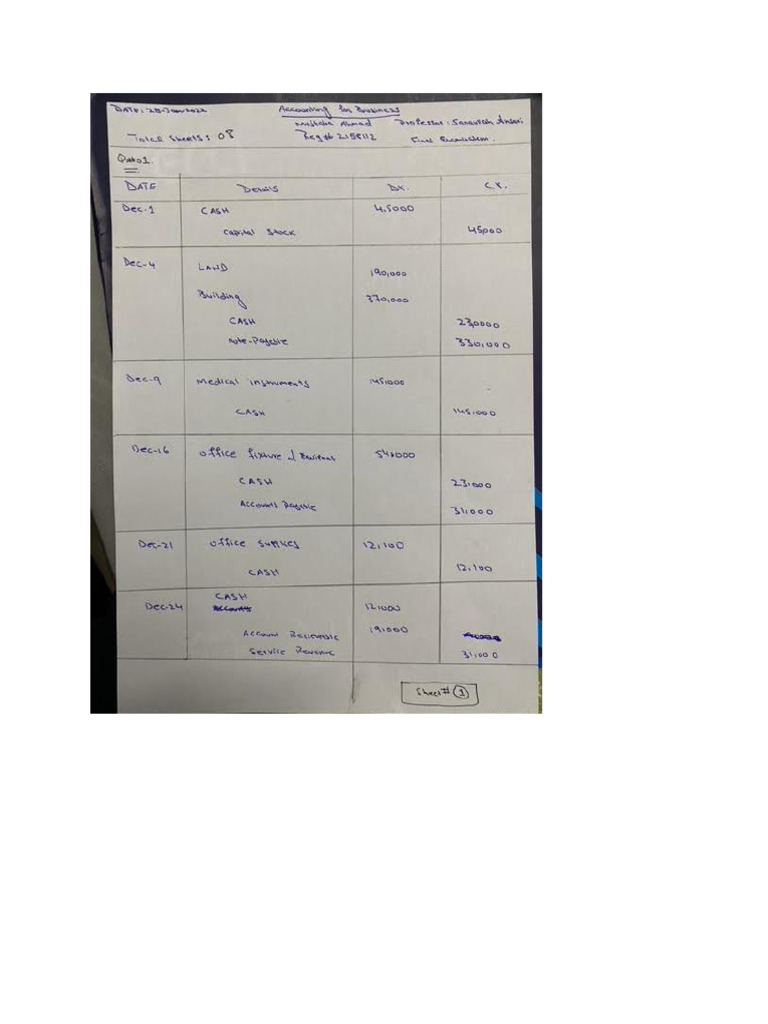 DATE: 28-Jan-2022 Accounting for Business
Mujtaba Ahmad Professor: Ansari
Total Sheets: 08 Reg# 2158112 Final Examination.
Q no 1.
DATE Details Dr. Cr.
Dec-1 CASH 45000
Capital Stock 45000
Dec-4 LAND 190,000
Building 370,000
CASH 230000
Note-Payable 330,000
Dec-9 Medical instruments 145000
CASH 145,000
Dec-16 office fixture & 54,000
CASH 23,000
Accounts Payable 31,000
Dec-21 office supplies 12,100
CASH 12,100
Dec-24 CASH 12,000
Account Recievable 19,000
Service Revenue 31,000
Sheet# 1